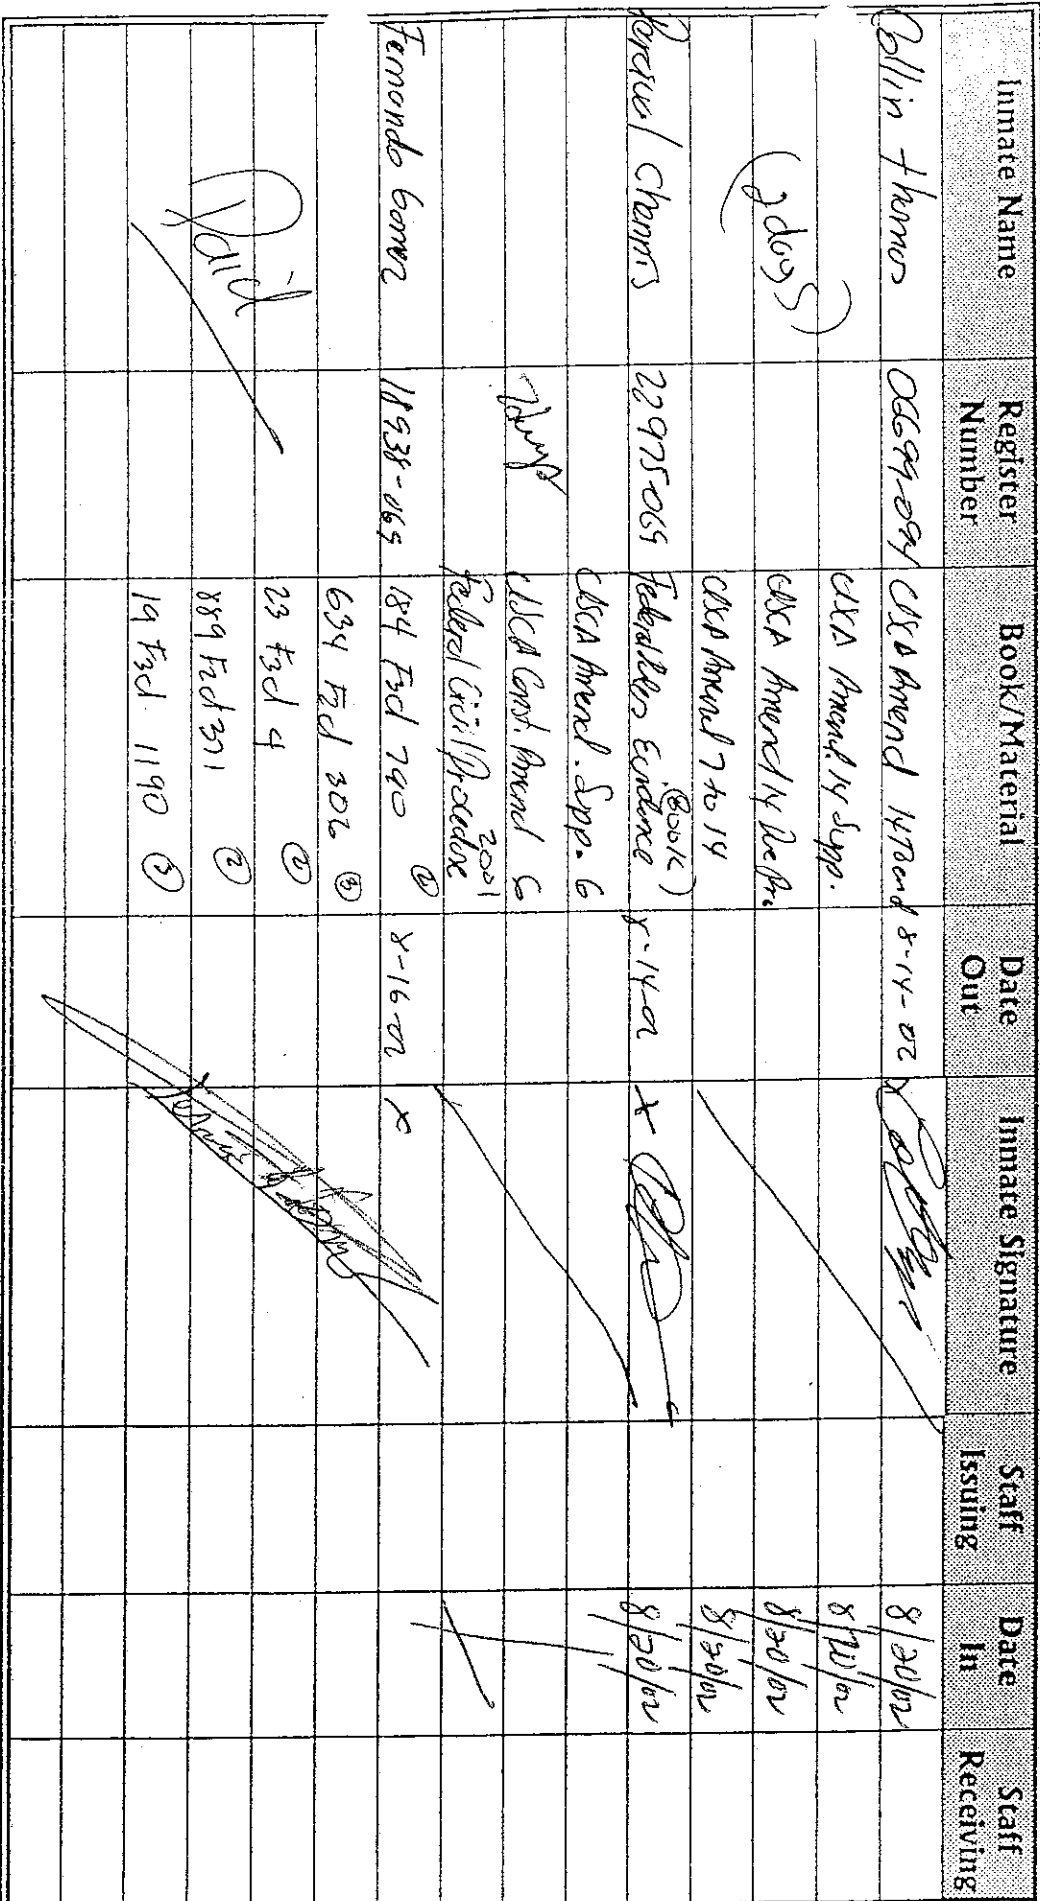 Inmate Name Register Number Book/Material Date Out Inmate Signature Staff Issuing Date In Staff Receiving
Collin Thomas 06699-094 USCA Amend 14 8-14-02 X 8/20/02
USCA Amend. 14 Supp. 8/20/02
(2 days) USCA Amend 14 8/20/02
USCA Amend 7 to 14 8/20/02
Percival 22975-069 Federal Rules Evidence (Book) 8-14-02 X 8/20/02
USCA Amend. Supp. 6
7 days USCA Const. Amend 6
Federal Civil Procedure 2001
Fernando Gomez 18938-069 184 F3d 790 ② 8-16-02 X
634 F2d 302 ③
23 F3d 4 ②
Paid 889 F2d 371 ②
19 F3d 1190 ③